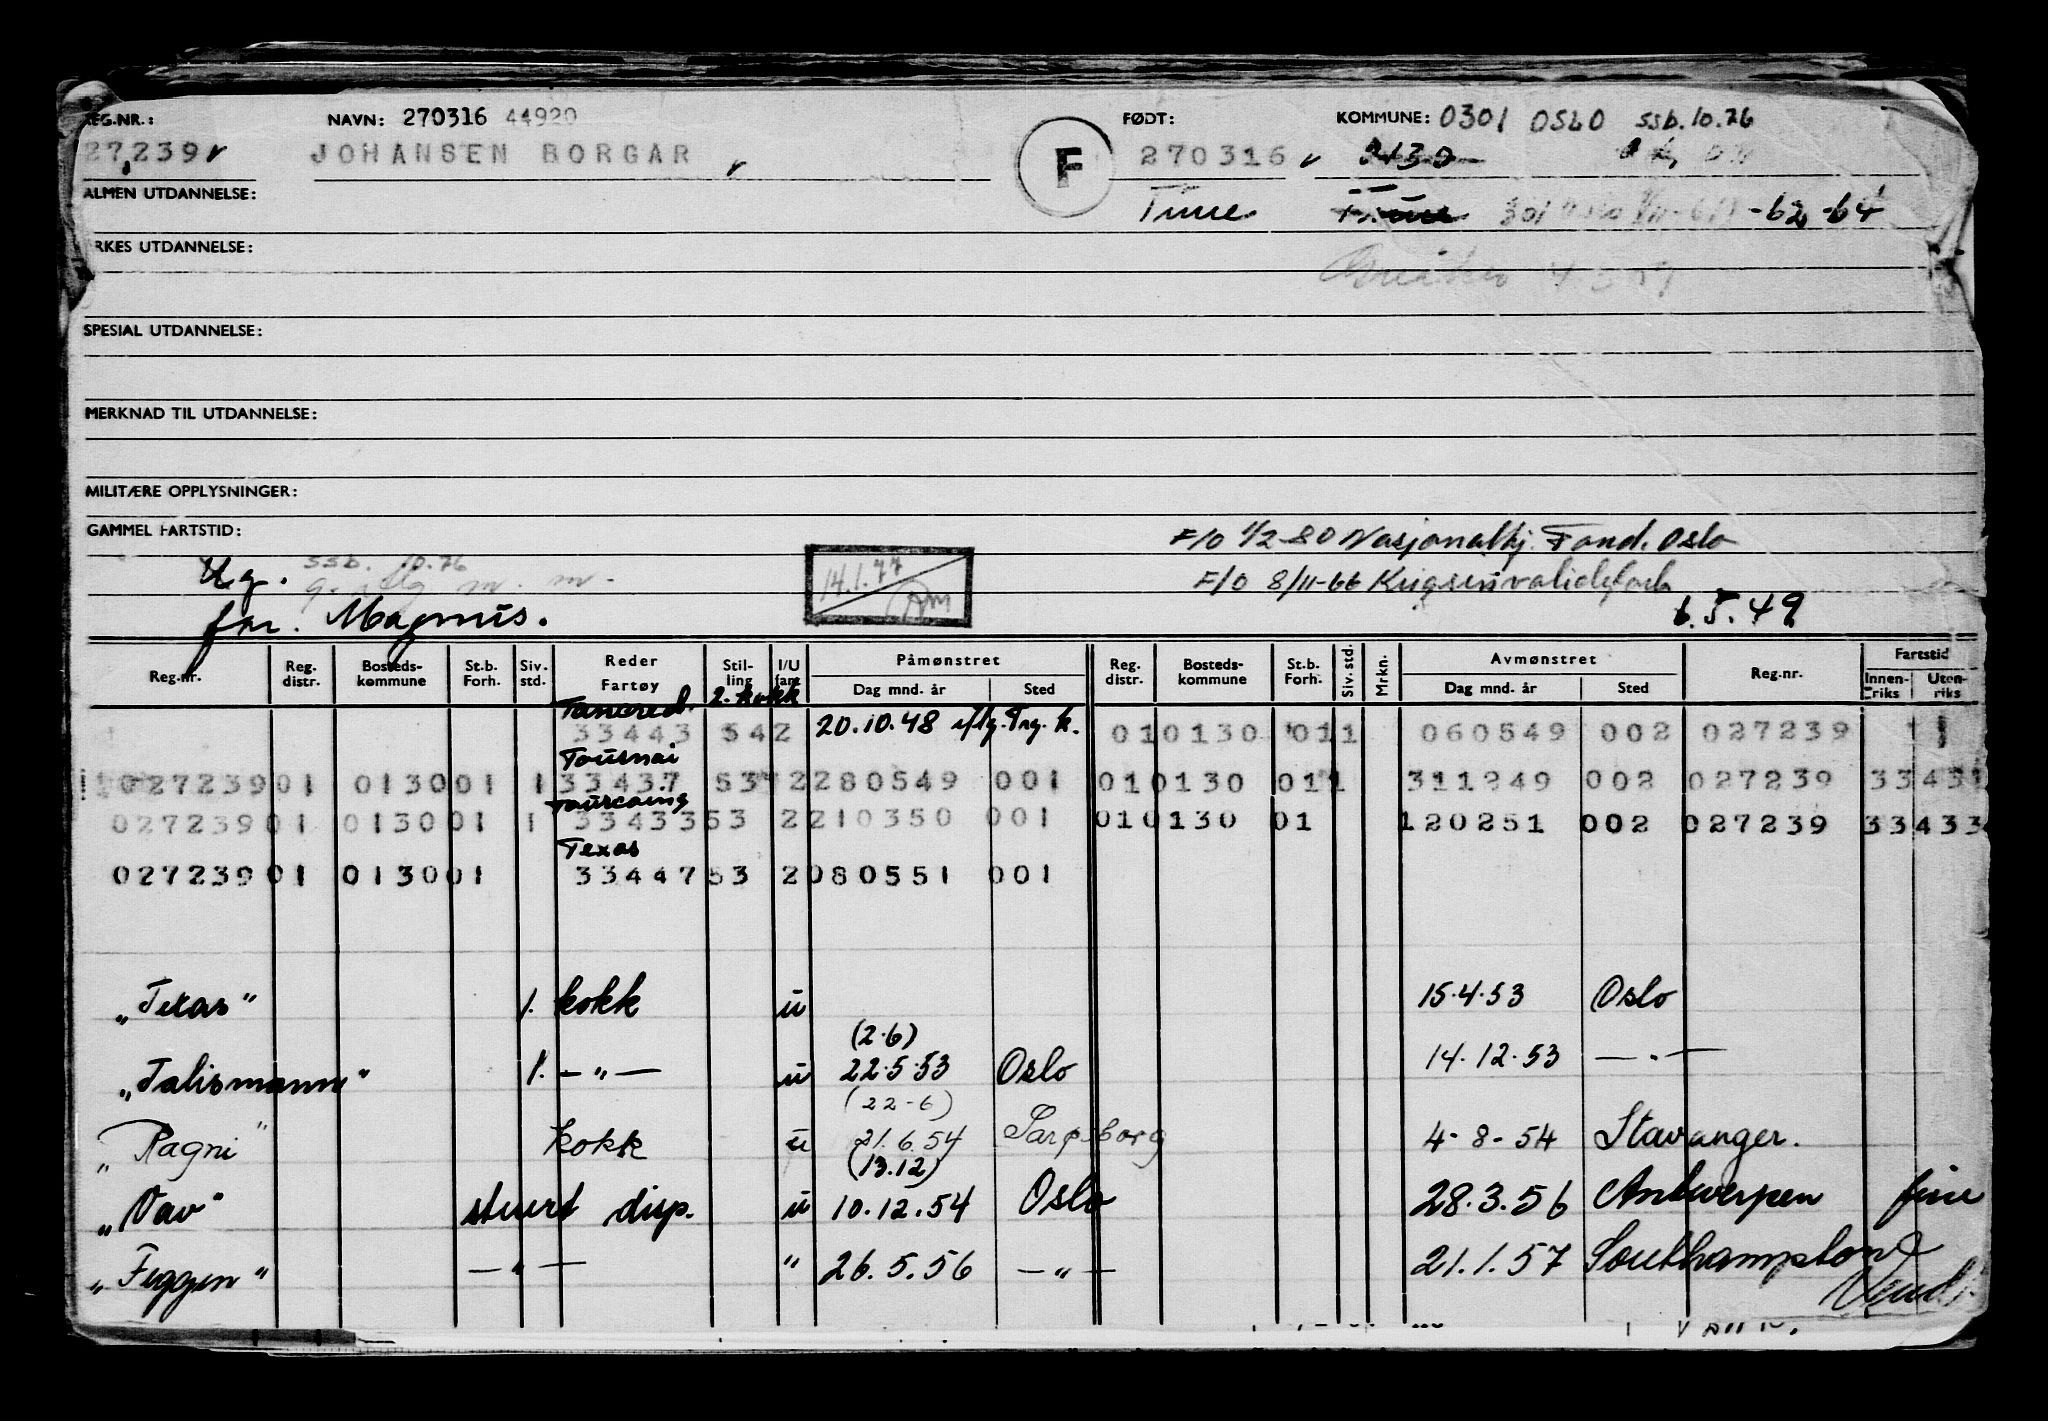 REG.NR.: NAVN: 270316 44920 FØDT: KOMMUNE: 0301 OSLO ssb. 10.76
27239 JOHANSEN BORGAR F 270316 2130
ALMEN UTDANNELSE: Time Time 301 Oslo -62 -64
RKES UTDANNELSE:
SPESIAL UTDANNELSE:
MERKNAD TIL UTDANNELSE:
MILITÆRE OPPLYSNINGER:
GAMMEL FARTSTID:
F/O 1/2-80 Nasjonalhj. Fond. Oslo
Ug. ssb. 10.76 14.1.77 F/O 8/11-66 Krigsinvalidefork
g. m. m.
far. Magnus. 6.5.49
Reg.nr. Reg. distr. Bosteds-kommune St.b. Forh. Siv. std. Reder Fartøy Stil-ling I/U fart Påmønstret Dag mnd. år Sted Reg. distr. Bosteds-kommune St.b. Forh. Siv. std. Mrkn. Avmønstret Dag mnd. år Sted Reg.nr. Fartstid Innen-riks Uten-riks
Tancred. 2. kokk
33443 542 20.10.48 iflg. Trg. k. 010130 011 060549 002 027239
Tournai
027239 01 0130 01 1 33437 53 2 280549 001 010130 011 311249 002 027239 33437
Tourcoing
027239 01 0130 01 1 33433 53 2 210350 001 010130 01 120251 002 027239 33433
Texas
027239 01 0130 01 33447 53 2 080551 001
"Texas" 1. kokk u 15.4.53 Oslo
(2.6)
"Talismann" 1. — " — u 22.5.53 Oslo 14.12.53 — " —
(22-6)
"Ragni" kokk u 21.6.54 Sarpsborg 4-8-54 Stavanger.
(13.12)
"Vav" stuert disp. u 10.12.54 Oslo 28.3.56 Antwerpen
"Feggen" — " — " 26.5.56 — " — 21.1.57 Southampton
Vend